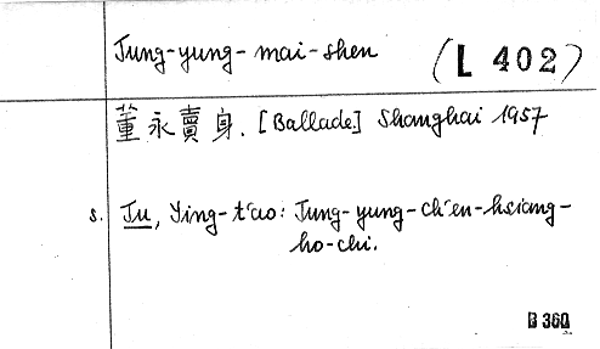 Tung-yung-mai-shen (L 402)
董永賣身. [Ballade] Shanghai 1957
s. Tu, Ying-t'ao: Tung-yung-ch'en-hsiang-
ho-chi.
B 360